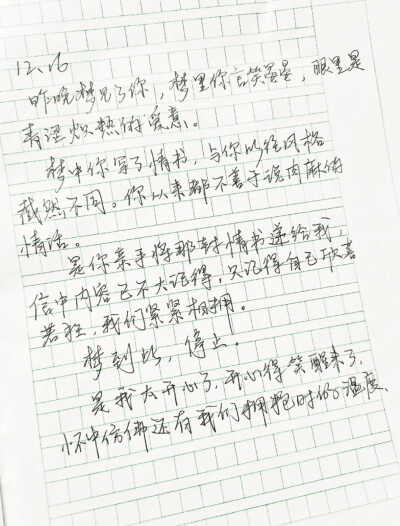 12.16
昨晚梦见了你，梦里你言笑晏晏，眼里是
青涩炽热的爱意。
梦中你写了情书，与你以往风格
截然不同。你从来都不善于说肉麻的
情话。
是你亲手将那封情书递给我，
信中内容已不大记得，只记得自己欣喜
若狂，我们紧紧相拥。
梦到此，停止。
是我太开心了，开心得笑醒来了，
怀中仿佛还有我们拥抱时的温度。